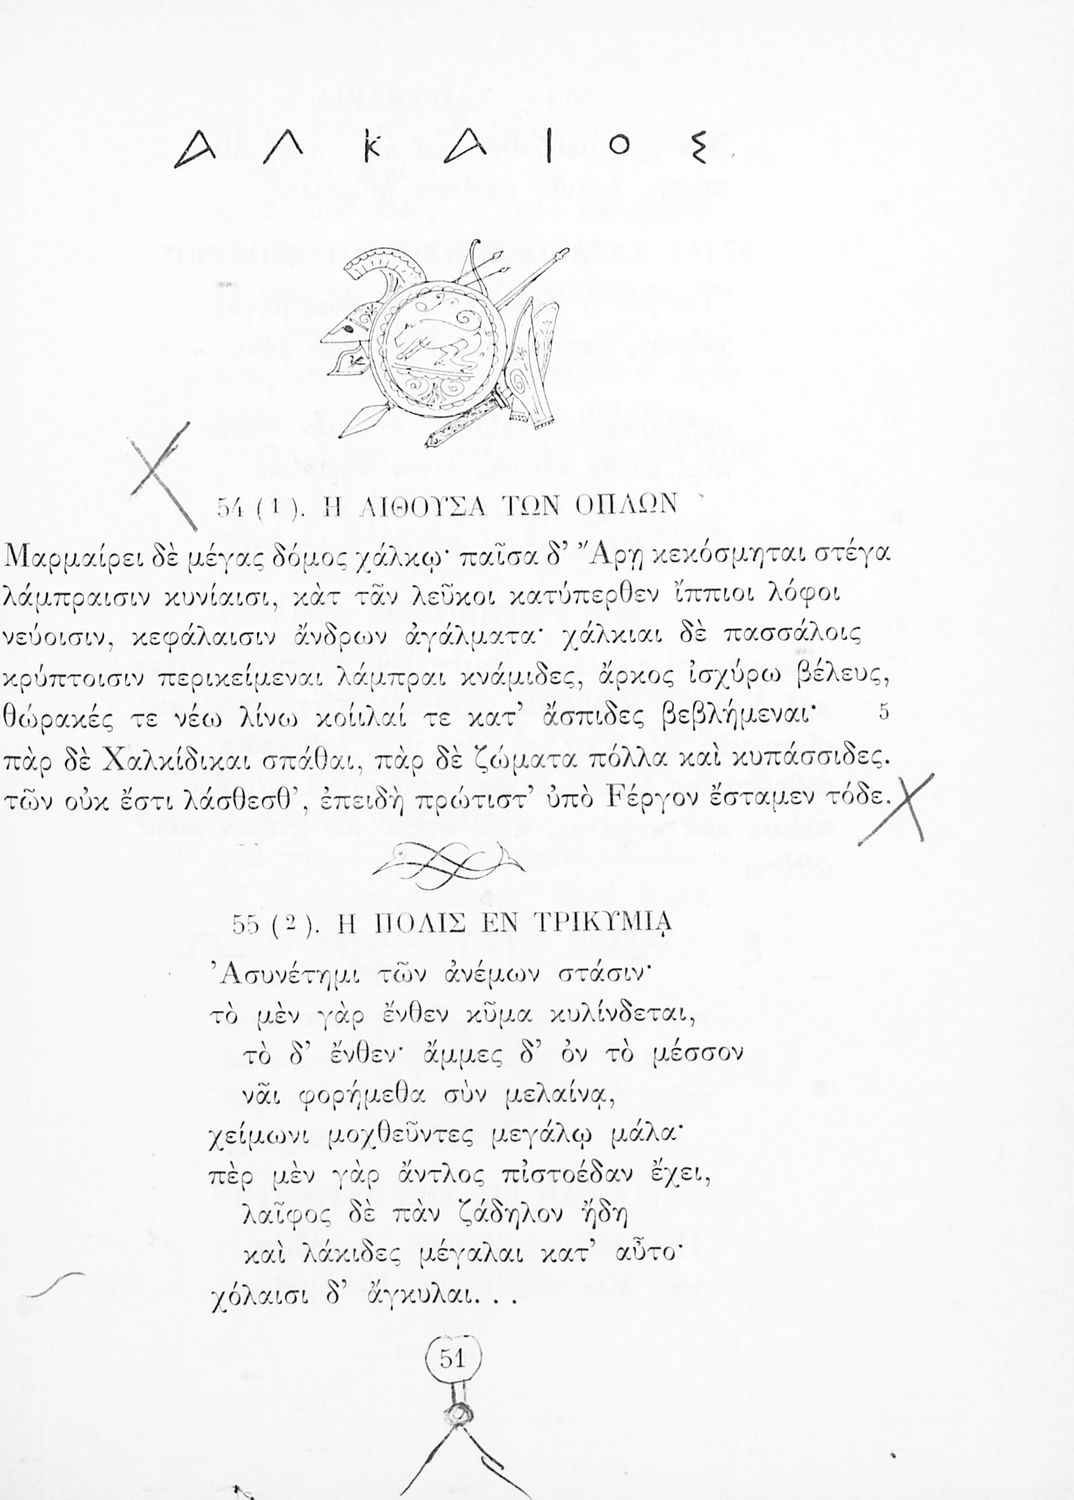 ΑΛΚΑΙΟΣ
54 (1). Η ΑΙΘΟΥΣΑ ΤΩΝ ΟΠΛΩΝ
Μαρμαίρει δὲ μέγας δόμος χάλκῳ· παῖσα δ’ Ἄρῃ κεκόσμηται στέγα
λάμπραισιν κυνίαισι, κὰτ τᾶν λεῦκοι κατύπερθεν ἴππιοι λόφοι
νεύοισιν, κεφάλαισιν ἄνδρων ἀγάλματα· χάλκιαι δὲ πασσάλοις
κρύπτοισιν περικείμεναι λάμπραι κνάμιδες, ἄρκος ἰσχύρω βέλευς,
θώρακές τε νέω λίνω κοίιλαί τε κατ’ ἄσπιδες βεβλήμεναι· 5
πὰρ δὲ Χαλκίδικαι σπάθαι, πὰρ δὲ ζώματα πόλλα καὶ κυπάσσιδες.
τῶν οὐκ ἔστι λάσθεσθ’, ἐπειδὴ πρώτιστ’ ὐπὸ Ϝέργον ἔσταμεν τόδε.
55 (2). Η ΠΟΛΙΣ ΕΝ ΤΡΙΚΥΜΙᾼ
Ἀσυνέτημι τῶν ἀνέμων στάσιν·
τὸ μὲν γὰρ ἔνθεν κῦμα κυλίνδεται,
τὸ δ’ ἔνθεν· ἄμμες δ’ ὀν τὸ μέσσον
νᾶι φορήμεθα σὺν μελαίνᾳ,
χείμωνι μοχθεῦντες μεγάλῳ μάλα·
πὲρ μὲν γὰρ ἄντλος πἰστοέδαν ἔχει,
λαῖφος δὲ πὰν ζάδηλον ἤδη
καὶ λάκιδες μέγαλαι κατ’ αὖτο·
χόλαισι δ’ ἄγκυλαι. . .
51